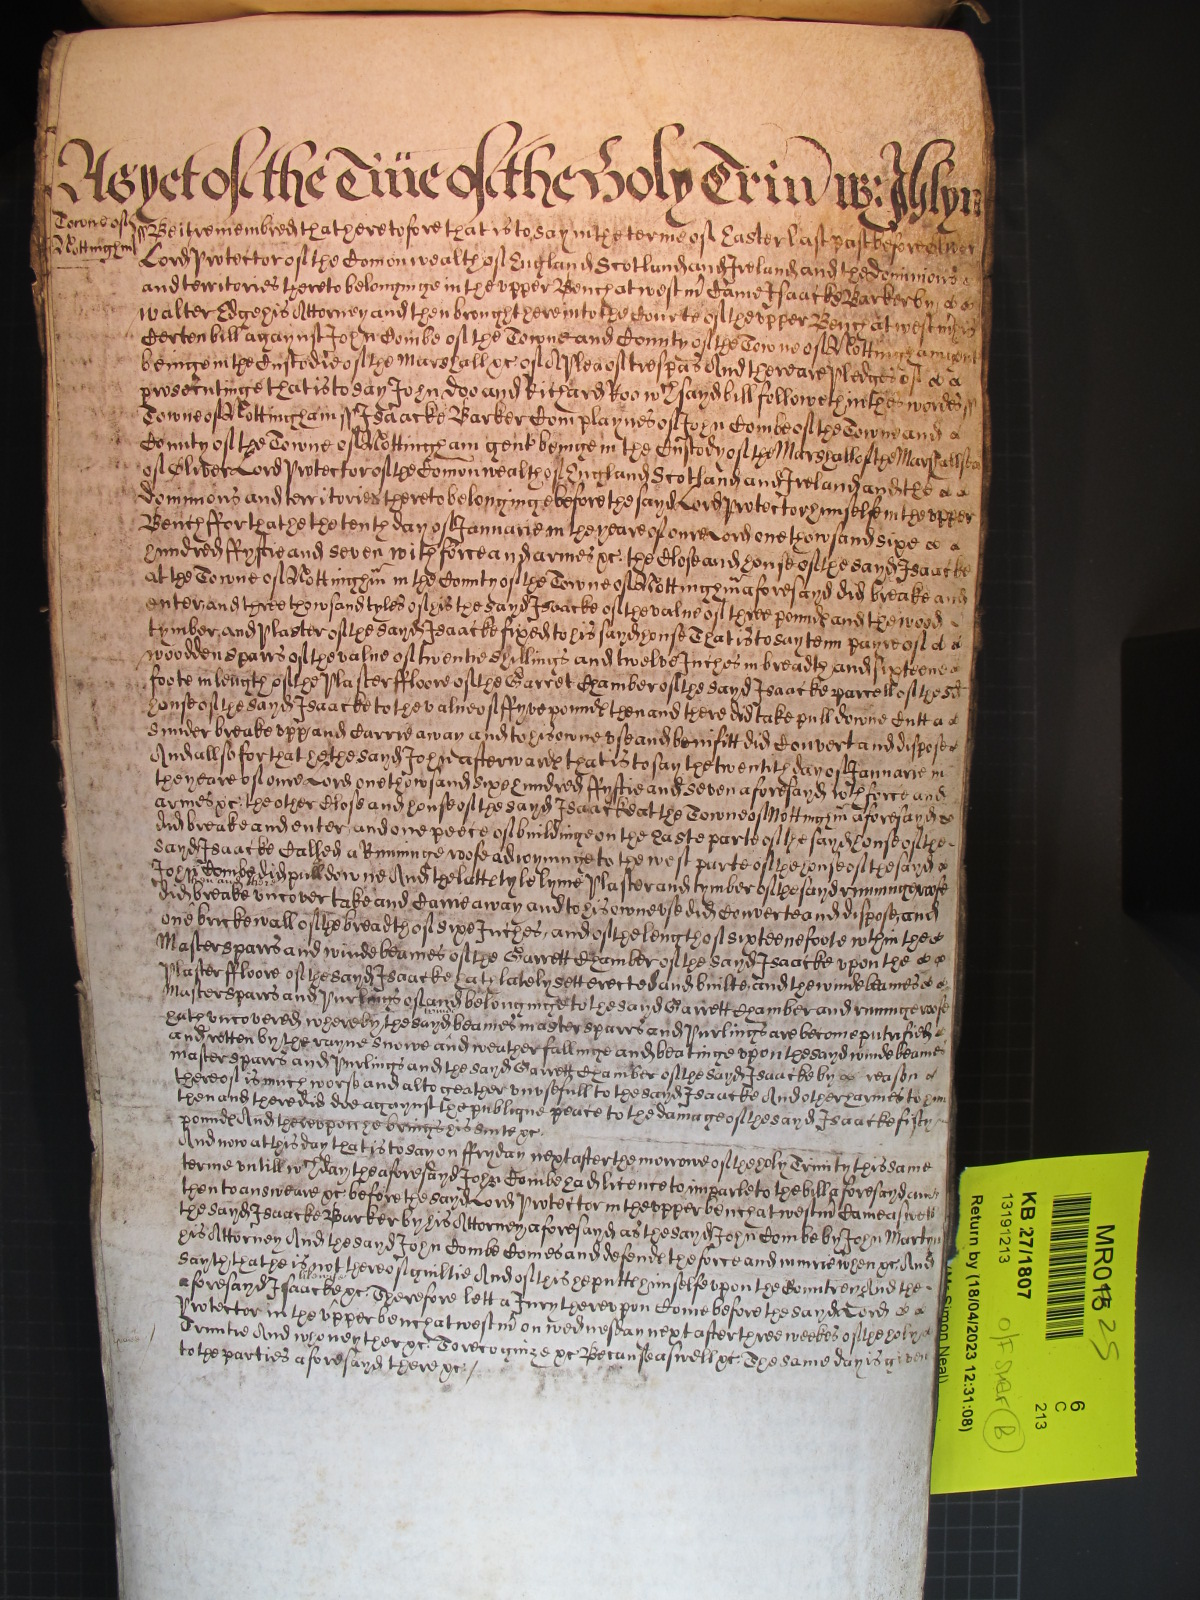 As yet of the Time of the Holy Trin w: Jhlyn
Towne of
Nottinghm
ss Be it remembred that heretofore that is to say in the terme of Easter last past before Oliver
Lord Protector of the Comonwealth of England Scotland and Ireland and the dominions
and territories thereto belonginge in the upper Bench at westm Came Isaacke Barker by
walter Edge his Attorney and then brought here into the Courte of the upper Bench at westm his
Certen bill against John Combe of the Towne and County of the Towne of Nottingham gent
beinge in the Custodie of the Marshall &c of A Plea of trespas And there are Pledges of
prosecutinge that is to say John Doo and Richard Roo wch sayd bill followeth in thes wordes ss
Towne of Nottingham ss Isaacke Barker Complaynes of John Combe of the Towne and
County of the Towne of Nottingham gent beinge in the Custody of the Marshall of the Marshallsea
of Oliver Lord Protector of the Comonwealth of England Scotland and Ireland and the
dominions and territories thereto belonginge before the sayd Lord Protector himselfe in the upper
Bench ffor that he the tenth day of Januarie in the yeare of oure Lord one thowsand sixe
hundred ffyftie and seven with force and armes &c: the Close and house of the sayd Isaacke
at the Towne of Nottinghm in the County of the Towne of Nottinghm aforesayd did breake and
enter, and three thowsand tyles of his the sayd Isaacke of the value of three pounds and the wood
tymber, and Plaster of the sayd Isaacke fixed to his sayd house That is to say tenn payre of
woodden sparrs of the value of twentie shillings and twelve Inches in breadth and sixteene
foote in length of the Plaster ffloore of the Garret Chamber of the sayd Isaacke parcell of the sd
house of the sayd Isaacke to the value of ffyve pounds then and there did take pull downe Cutt a
sunder breake upp and Carrie away and to his owne use and benifitt did Convert and dispose
And allso for that he the sayd John afterwards that is to say the twentith day of Januarie in
the yeare of oure Lord one thowsand sixe hundred ffyftie and seven aforesayd wth force and
armes &c: the other Close and house of the sayd Isaacke at the Towne of Nottinghm aforesayd
did breake and enter, and one peece of buildinge on the Easte parte of the sayd house of the
sayd Isaacke Called a Runninge roofe adioyninge to the west parte of the house of the sayd
John Combe did pull downe And the lath tyle lyme Plaster and tymber of the sayd runninge roofe
did breake uncover take and Carrie away and to his owne use did Converte and dispose, and
one bricke wall of the breadth of sixe Inches, and of the length of sixteene foote within the
Master sparrs and winde beames of the Garrett Chamber of the sayd Isaacke upon the
Plaster ffloore of the sayd Isaacke hath lately sett erected and builte, and the winde beames
Master sparrs and Purlings of and belonginge to the sayd Garrett Chamber and runninge roofe
hath uncovered, whereby the sayd winde beames master sparrs and Purlings are become putrified
and rotten by the rayne snowe and weather fallinge and beatinge upon the sayd winde beames
master sparrs and Purlings and the sayd Garrett Chamber of the sayd Isaacke by reason
thereof is much worse and altogeather unusefull to the sayd Isaacke And other harmes to him
then and there did doe against the publique peace to the damage of the sayd Isaacke fifty
pounds And thereupon he brings his suite &c.
And now at this day that is to say on ffryday next after the morrowe of the holy Trinity this same
terme untill wch day the aforesayd John Combe had licence to imparle to the bill aforesayd and
then to answeare &c before the sayd Lord Protector in the upper bench at westm Came aswell
the sayd Isaacke Barker by his Attorney aforesayd as the sayd John Combe by John Martyn
his Attorney And the sayd John Combe Comes and defends the force and iniurie when &c. And
sayth that he is not thereof guiltie And of this he putts himselfe upon the Countrey And the
aforesayd Isaacke likewise &c. Therefore lett a Jury thereupon Come before the sayd Lord
Protector in the upper bench at westm on wednesday next after three weekes of the holy
Trinitie And who neyther &c. To recognize &c Because aswell &c. The same day is given
to the parties aforesayd there &c./
MR018 25
6
C
213
KB 27/1807
13191213
Return by (18/04/2023 12:31:08)
(Mr Simon Neal)
B